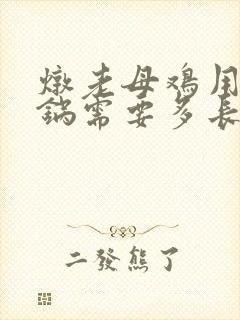 燉老母鸡用
鍋需要多長
二發熊了